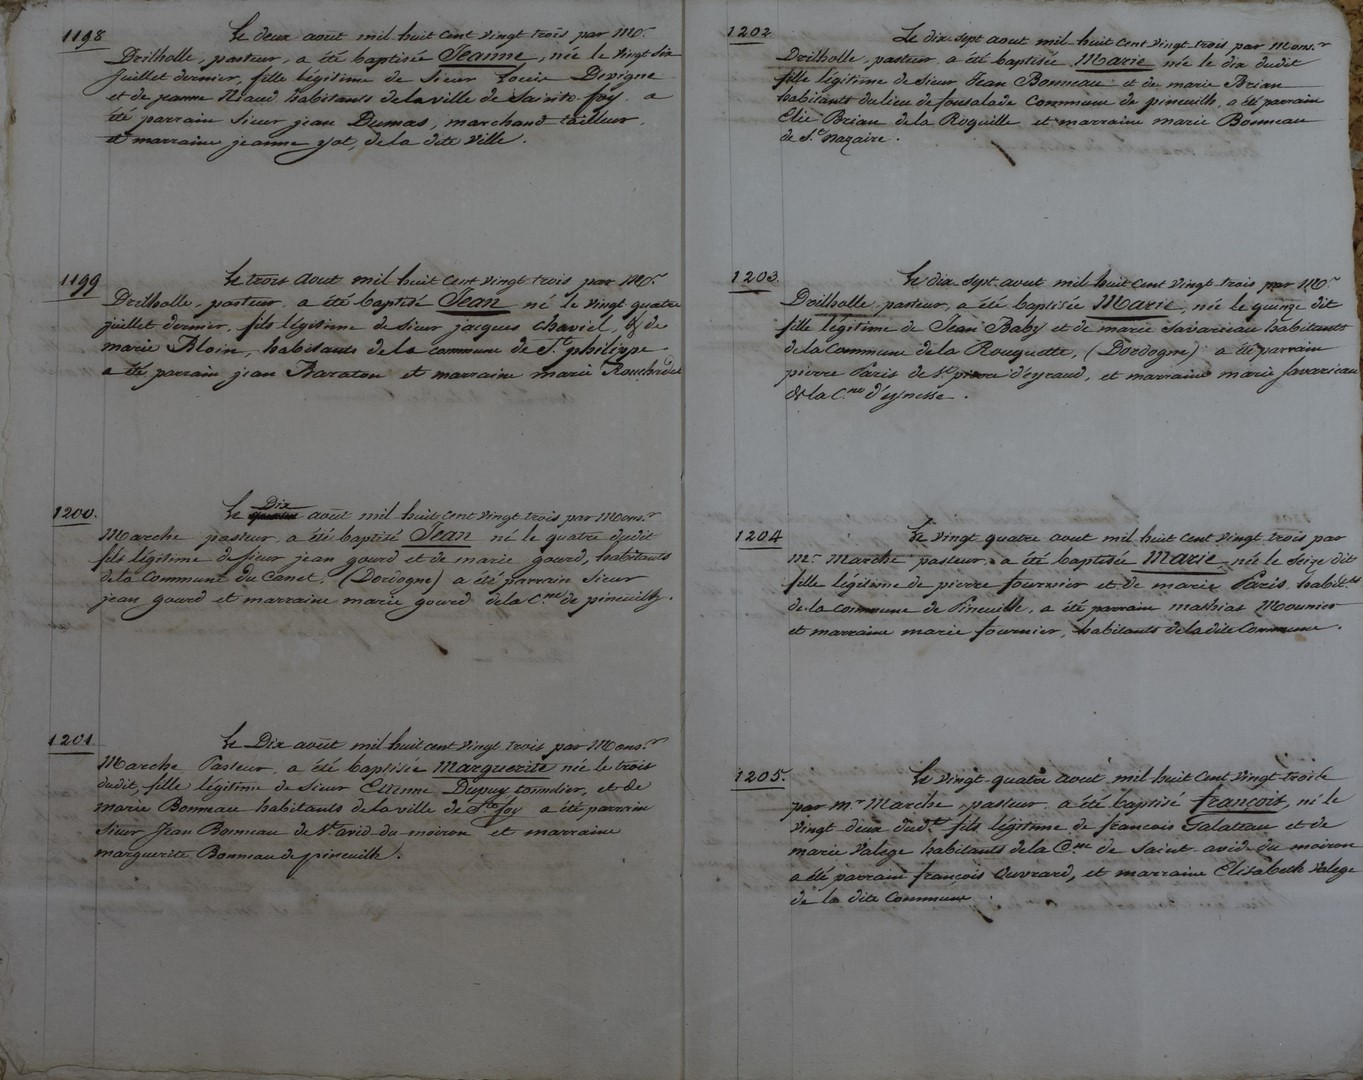 1198
Le deux aout mil huit cent vingt trois par Mr.
Drilholle, pasteur, a été baptisée Jeanne, née le vingt six
juillet dernier, fille légitime de Sieur Louis Devigne
et de jeanne habitants de la ville de Sainte foy. a
été parrain Sieur jean Dumas, marchand tailleur,
et marraine jeanne de la dite Ville.
1199
Le trois aout mil huit cent vingt trois par Mr.
Drilholle, pasteur, a été baptisé Jean né le vingt quatre
juillet dernier, fils légitime de Sieur jacques et de
marie Bloin, habitants de la commune de St. philippe.
a été parrain jean Baraton et marraine marie
1200.
Le Dix aout mil huit cent vingt trois par Mons.r
Marche pasteur, a été baptisé Jean né le quatre dudit
fils légitime de Sieur jean gourd et de marie gourd, habitants
de la Commune du Canet, (Dordogne) a été parrain Sieur
jean gourd et marraine marie gourd de la C.ne de pineuilh.
1201
Le Dix août mil huit cent vingt trois par Mons.r
Marche Pasteur, a été baptisée Marguerite née le trois
dudit, fille légitime de Sieur Etienne Dupuy tonnelier, et de
marie Bonneau habitants de la ville de Ste foy a été parrain
Sieur Jean Bonneau de St avid du moiron et marraine
marguerite Bonneau de pineuilh.
1202
Le dix sept aout mil huit cent vingt trois par Mons.r
Drilholle, pasteur, a été baptisée Marie née le dix dudit
fille légitime de Sieur Jean Bonneau et de marie Brian
habitants du lieu de fonsalade Commune de pineuilh, a été parrain
Elie Brian de la Roquille et marraine marie Bonneau
de St. Nazaire.
1203
Le dix sept aout mil huit cent vingt trois, par Mr.
Drilholle pasteur, a été baptisée Marie, née le quinze dit
fille légitime de Jean Baby et de marie Savariaux habitants
de la Commune de la Rouquette, (Dordogne) a été parrain
pierre Paris de St pierre d'eyraud, et marraine marie Savariau
de la C.ne d'eynesse.
1204
Le vingt quatre aout mil huit cent vingt trois par
mr Marche pasteur, a été baptisée Marie née le seize dit
fille légitime de pierre fournier et de marie Paris habit.ts
de la Commune de Pineuilh, a été parrain mathias Mounier
et marraine marie fournier, habitants de la dite Commune.
1205.
Le vingt quatre aout mil huit cent vingt trois
par mr Marche pasteur, a été baptisé françois, né le
vingt deux dud.t fils légitime de françois Talateau et de
marie Valege habitants de la C.ne de Saint avid du moiron
a été parrain françois Ouvrard, et marraine Elisabeth Valege
de la dite Commune